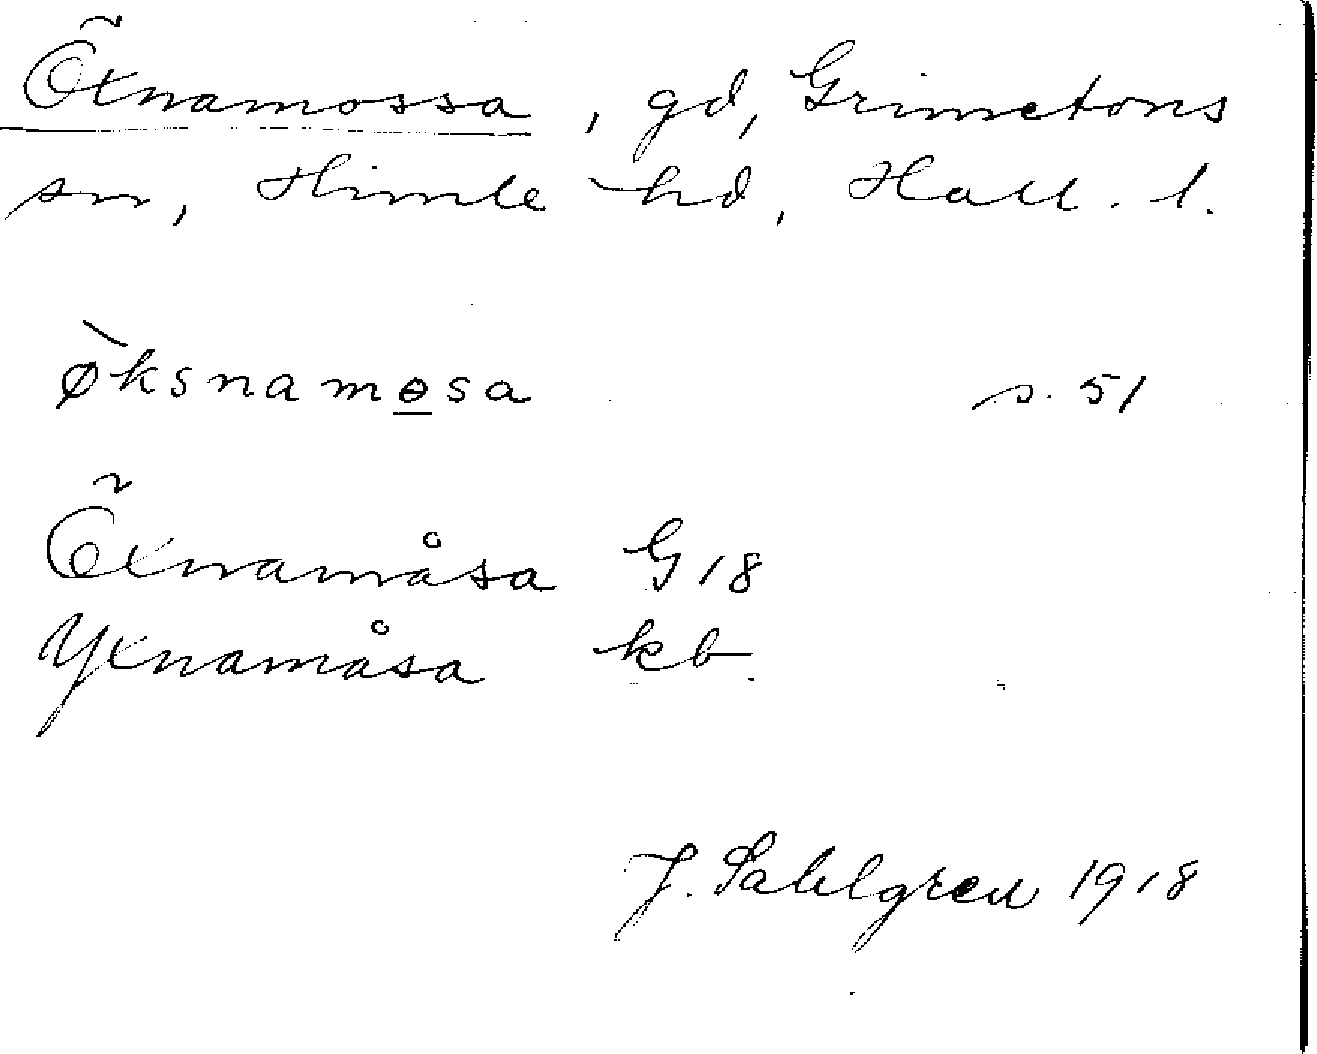 Öxnamossa, gd, Grimetons
sn, Himle hd, Hall. l.
øksnamosa s. 51
Öxnamåsa G 18
Yxnamåsa kb.
J. Sahlgren 1918